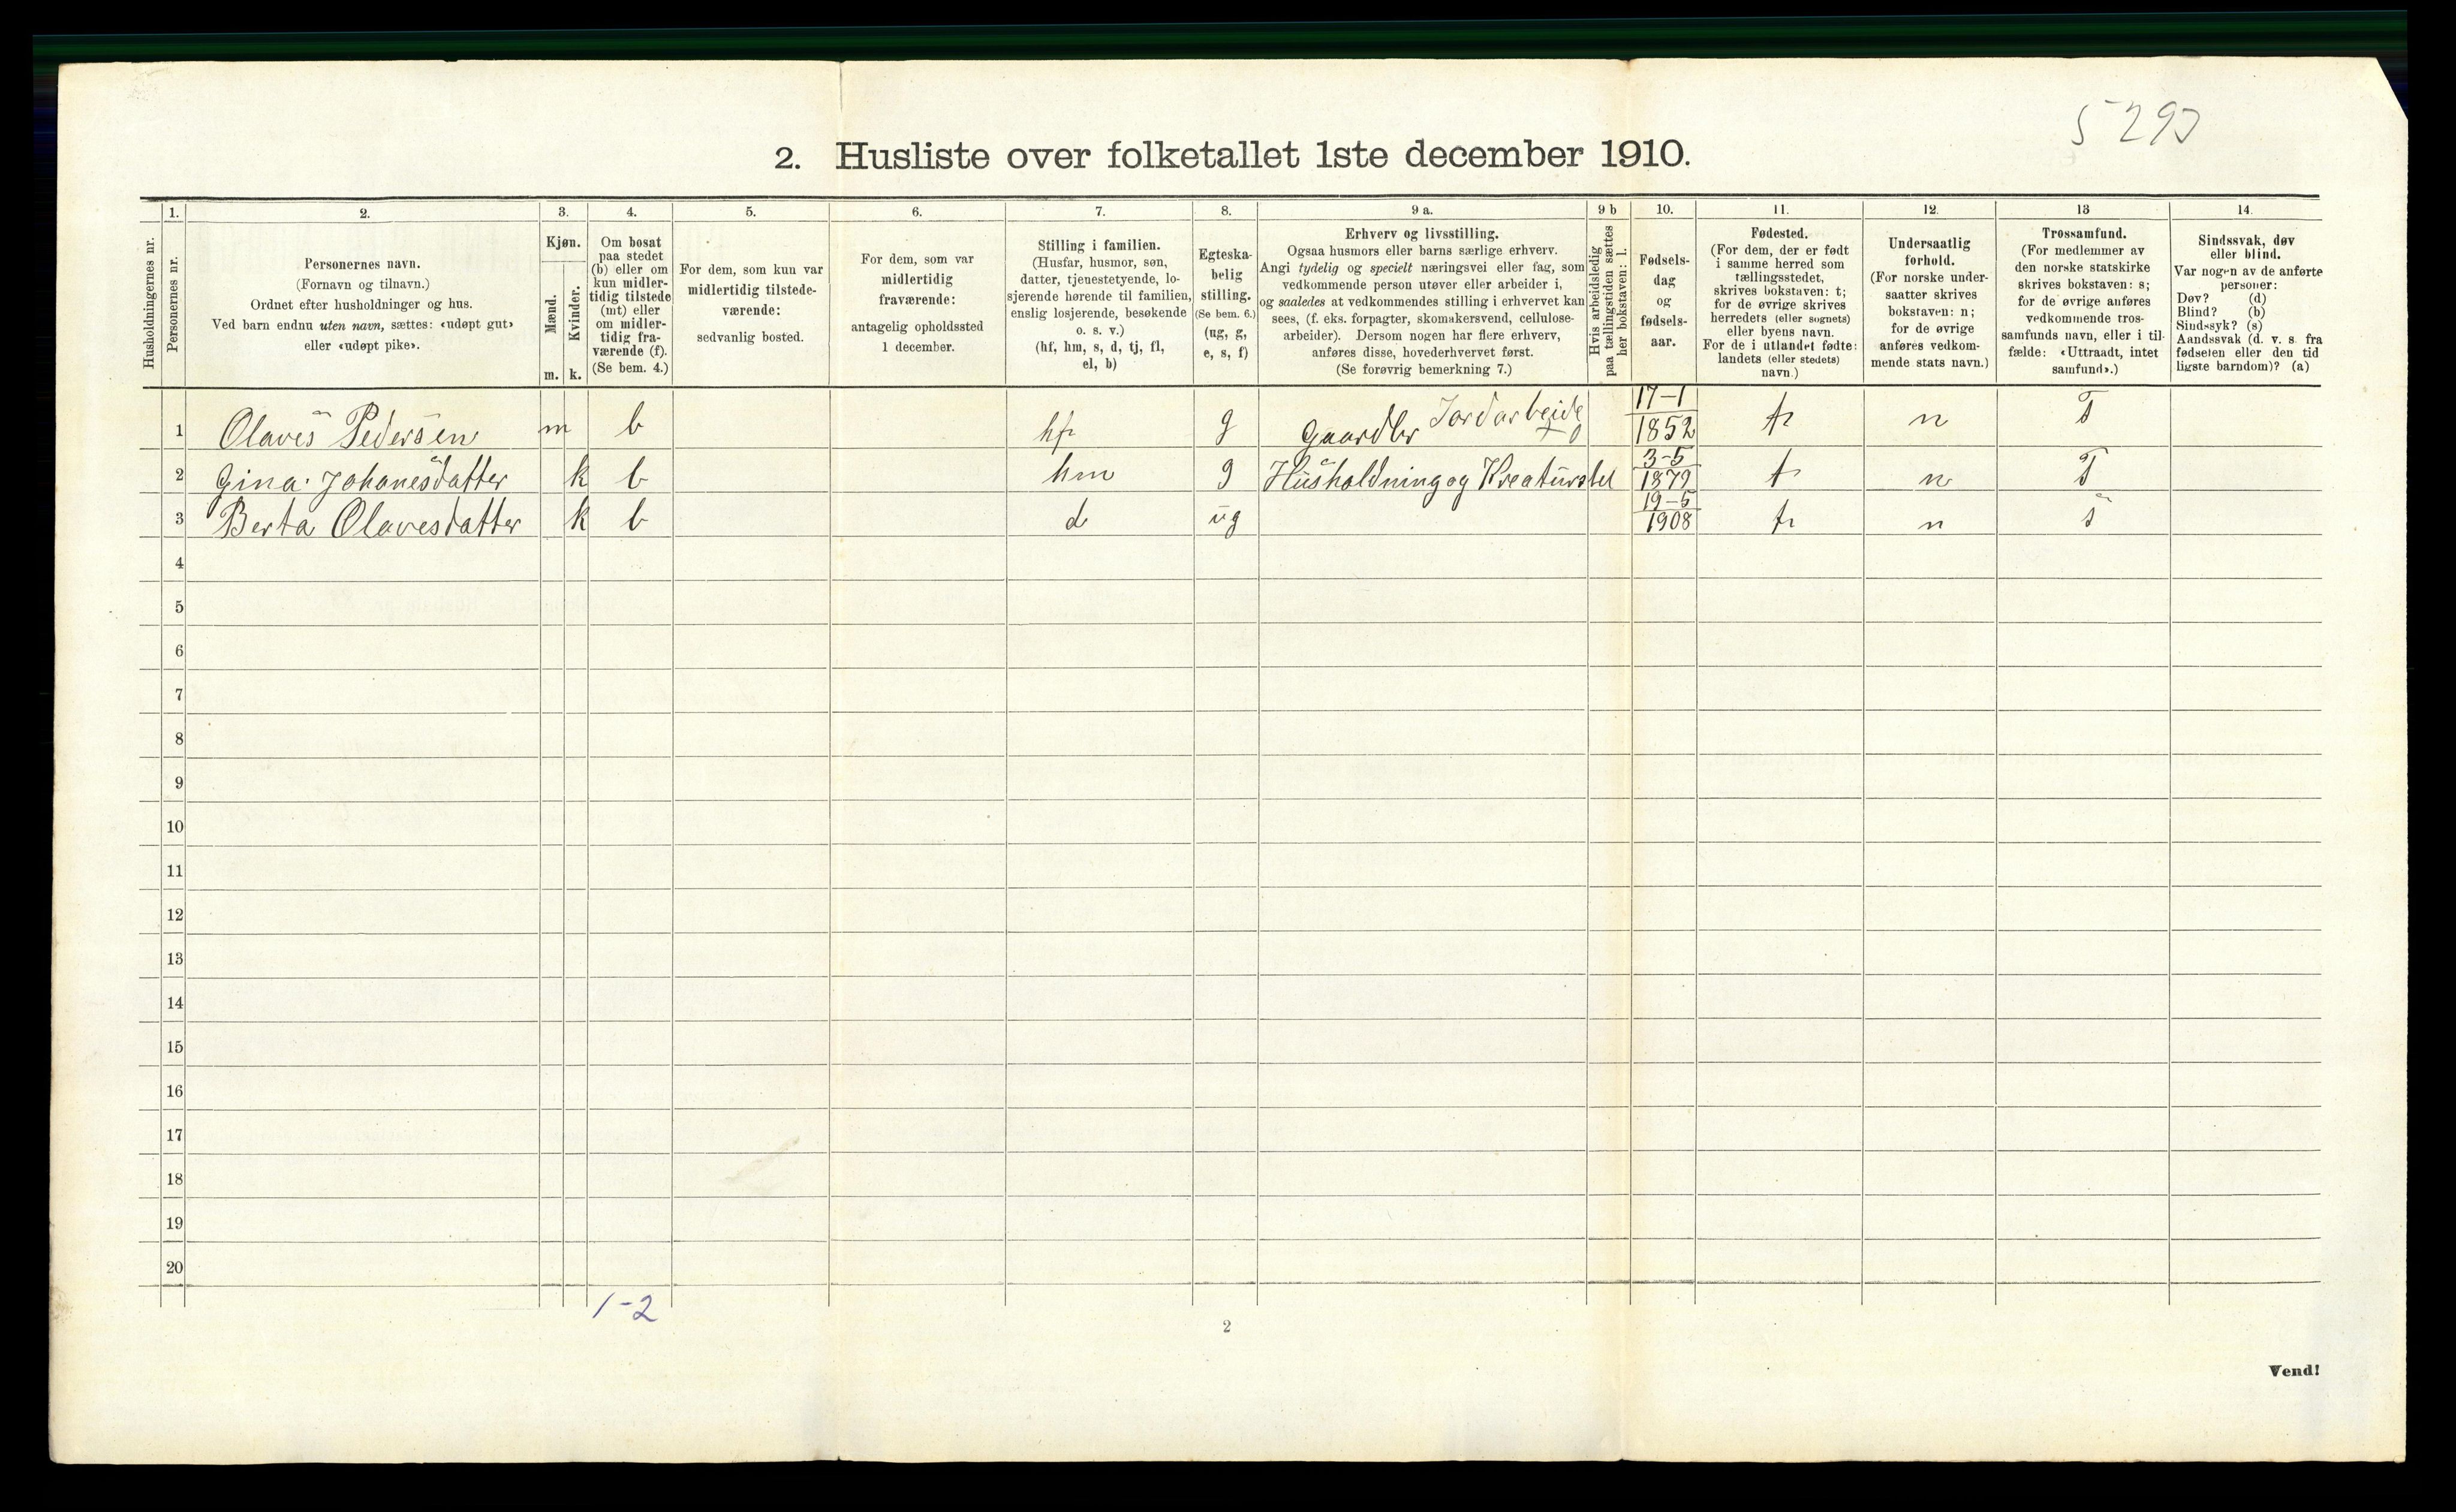 5293
2. Husliste over folketallet 1ste december 1910.
Husholdningernes nr.
1.
Personernes nr.
2.
Personernes navn.
(Fornavn og tilnavn.)
Ordnet efter husholdninger og hus.
Ved barn endnu uten navn, sættes: «udøpt gut»
eller «udøpt pike».
3.
Kjøn.
Mænd.
Kvinder.
m. k.
4.
Om bosat
paa stedet
(b) eller om
kun midler-
tidig tilstede
(mt) eller
om midler-
tidig fra-
værende (f).
(Se bem. 4.)
5.
For dem, som kun var
midlertidig tilstede-
værende:
sedvanlig bosted.
6.
For dem, som var
midlertidig
fraværende:
antagelig opholdssted
1 december.
7.
Stilling i familien.
(Husfar, husmor, søn,
datter, tjenestetyende, lo-
sjerende hørende til familien,
enslig losjerende, besøkende
o. s. v.)
(hf, hm, s, d, tj, fl,
el, b)
8.
Egteska-
belig
stilling.
(Se bem. 6.)
(ug, g,
e, s, f)
9 a.
Erhverv og livsstilling.
Ogsaa husmors eller barns særlige erhverv.
Angi tydelig og specielt næringsvei eller fag, som
vedkommende person utøver eller arbeider i,
og saaledes at vedkommendes stilling i erhvervet kan
sees, (f. eks. forpagter, skomakersvend, cellulose-
arbeider). Dersom nogen har flere erhverv,
anføres disse, hovederhvervet først.
(Se forøvrig bemerkning 7.)
9 b
Hvis arbeidsledig
paa tællingstiden sættes
her bokstaven: l.
10.
Fødsels-
dag
og
fødsels-
aar.
11.
Fødested.
(For dem, der er født
i samme herred som
tællingsstedet,
skrives bokstaven: t;
for de øvrige skrives
herredets (eller sognets)
eller byens navn.
For de i utlandet fødte:
landets (eller stedets)
navn.)
12.
Undersaatlig
forhold.
(For norske under-
saatter skrives
bokstaven: n;
for de øvrige
anføres vedkom-
mende stats navn.)
13
Trossamfund.
(For medlemmer av
den norske statskirke
skrives bokstaven: s;
for de øvrige anføres
vedkommende tros-
samfunds navn, eller i til-
fælde: «Uttraadt, intet
samfund».)
14.
Sindssvak, døv
eller blind.
Var nogen av de anførte
personer:
Døv? (d)
Blind? (b)
Sindssyk? (s)
Aandssvak (d. v. s. fra
fødselen eller den tid
ligste barndom)? (a)
1 Olaves Pedersen m b hf g Gaardbr Jordarbeide 17-1 1852 t n S
2 Gina Johanesdatter k b hm g Husholdning og Kreaturstel 3-5 1879 t n S
3 Berta Olavesdatter k b d ug 19-5 1908 t n s
4
5
6
7
8
9
10
11
12
13
14
15
16
17
18
19
20
1-2
2
Vend!